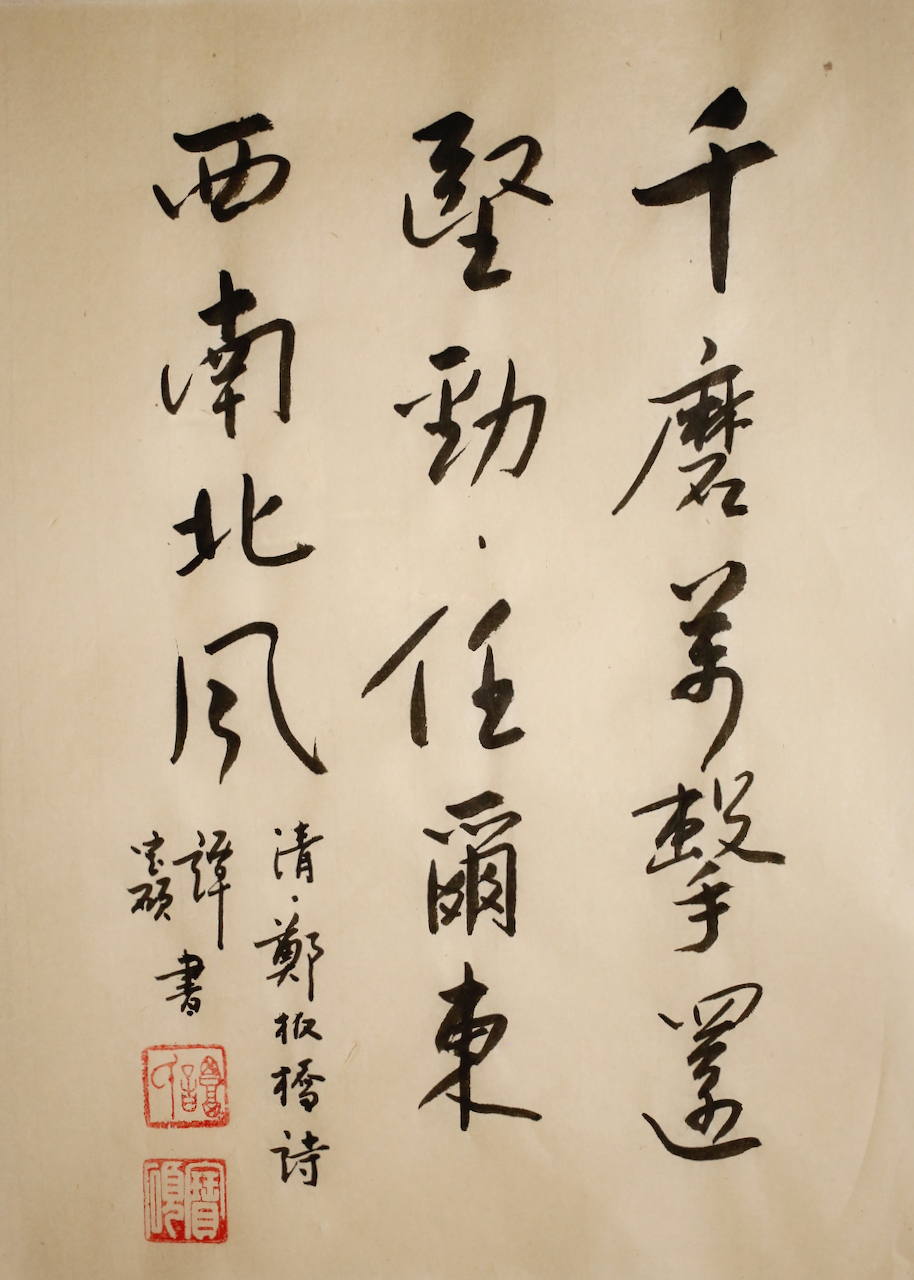 千磨萬擊還
堅勁·任爾東
西南北風
清·鄭板橋詩
譚
書